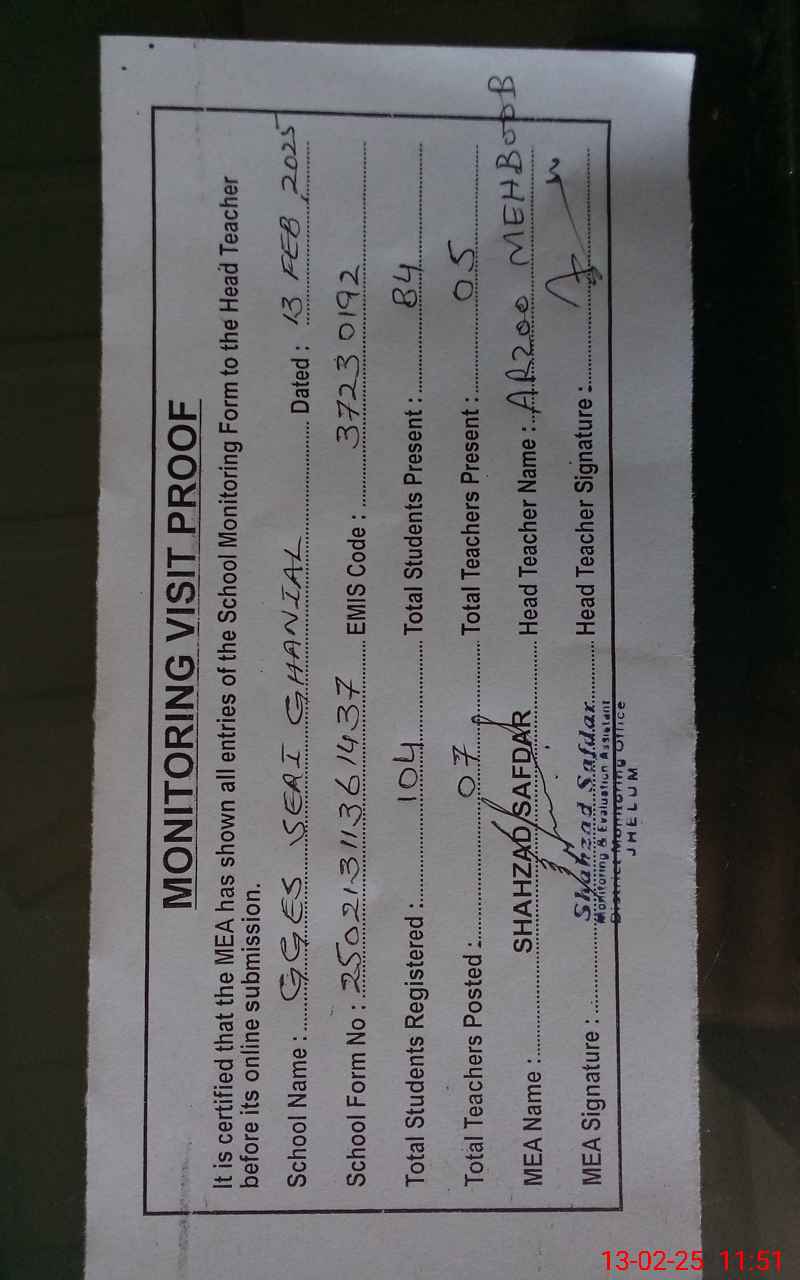 MONITORING VISIT PROOF
It is certified that the MEA has shown all entries of the School Monitoring Form to the Head Teacher
before its online submission.
School Name : GGES SERI GHANIAL Dated : 13 FEB, 2025
School Form No : 25021311361437 EMIS Code : 37230192
Total Students Registered : 104 Total Students Present : 84
Total Teachers Posted : 07 Total Teachers Present : 05
MEA Name : SHAHZAD SAFDAR Head Teacher Name : ARZOO MEHBOOB
MEA Signature : Shahzad Safdar Head Teacher Signature :
Monitoring & Evaluation Assistant
District Monitoring Office
JHELUM
13-02-25 11:51